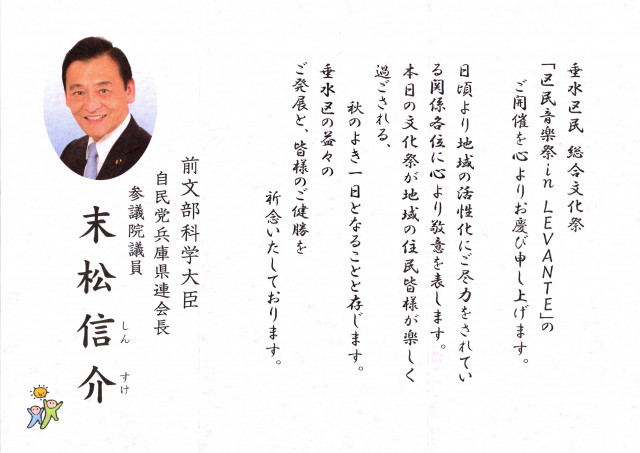 垂水区民 総合文化祭
「区民音楽祭in LEVANTE」の
ご開催を心よりお慶び申し上げます。
日頃より地域の活性化にご尽力をされてい
る関係各位に心より敬意を表します。
本日の文化祭が地域の住民皆様が楽しく
過ごされる、
秋のよき一日となることと存じます。
垂水区の益々の
ご発展と、皆様のご健勝を
祈念いたしております。
前文部科学大臣
自民党兵庫県連会長
参議院議員
末松信介
しん すけ